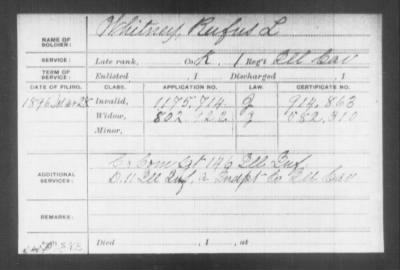 NAME OF SOLDIER: Whitney, Rufus L
SERVICE: Late rank, Co. K, 1 Reg't Ill Cav
TERM OF SERVICE: Enlisted , 1 Discharged , 1
DATE OF FILING. CLASS. APPLICATION NO. LAW. CERTIFICATE NO.
1896 Mar 25 Invalid, 1175.714 g 914.863
Widow, 802.722 g
Minor,
ADDITIONAL SERVICES: C, Com Sgt 146 Ill Inf
D. 11 Ill Inf, & Indpt Co Ill Cav
REMARKS:
Died , 1 , at